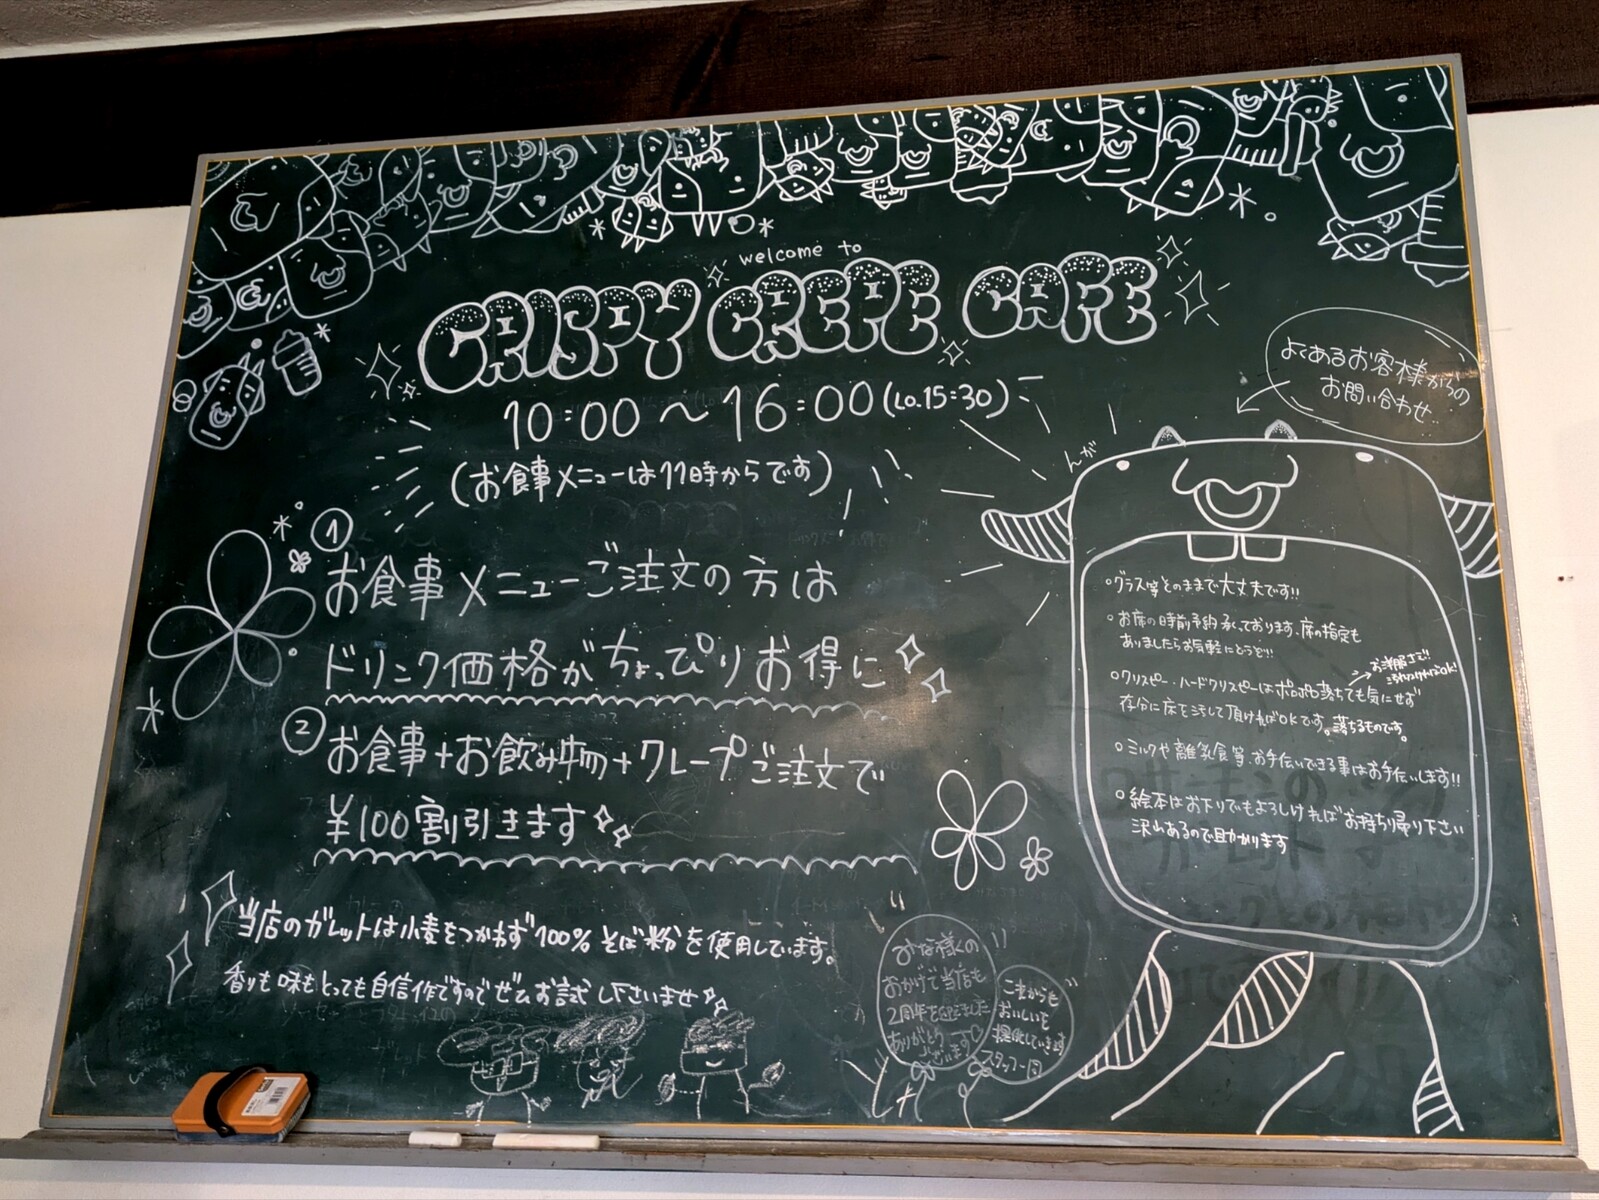 welcome to
CRISPY CREPE CAFE
10:00 〜 16:00 (Lo.15:30)
(お食事メニューは11時からです)
①
お食事メニューご注文の方は
ドリンク価格がちょっぴりお得に
② お食事+お飲み物+クレープご注文で
¥100割引きます
当店のガレットは小麦をつかわず100%そば粉を使用しています。
香りも味もとっても自信作ですのでぜひお試し下さいませ
よくあるお客様からの
お問い合わせ
んが
○グラス等そのままで大丈夫です!!
○お席の時前予約承っております、席の指定も
ありましたらお気軽にどうぞ!!
○クリスピー・ハードクリスピーはポロポロ落ちても気にせず
→お洋服まで!!
存分に床を汚して頂ければOKです。落ちるものです。
○ミルクや離乳食等、お手伝いできる事はお手伝いします!!
○絵本はお下りでもよろしければお持ち帰り下さい
沢山あるので助かります
みな様の
おかげで当店も
2周年を迎えました
ありがとう
ございます
これからも
おいしいを
提供していきます
スタッフ一同